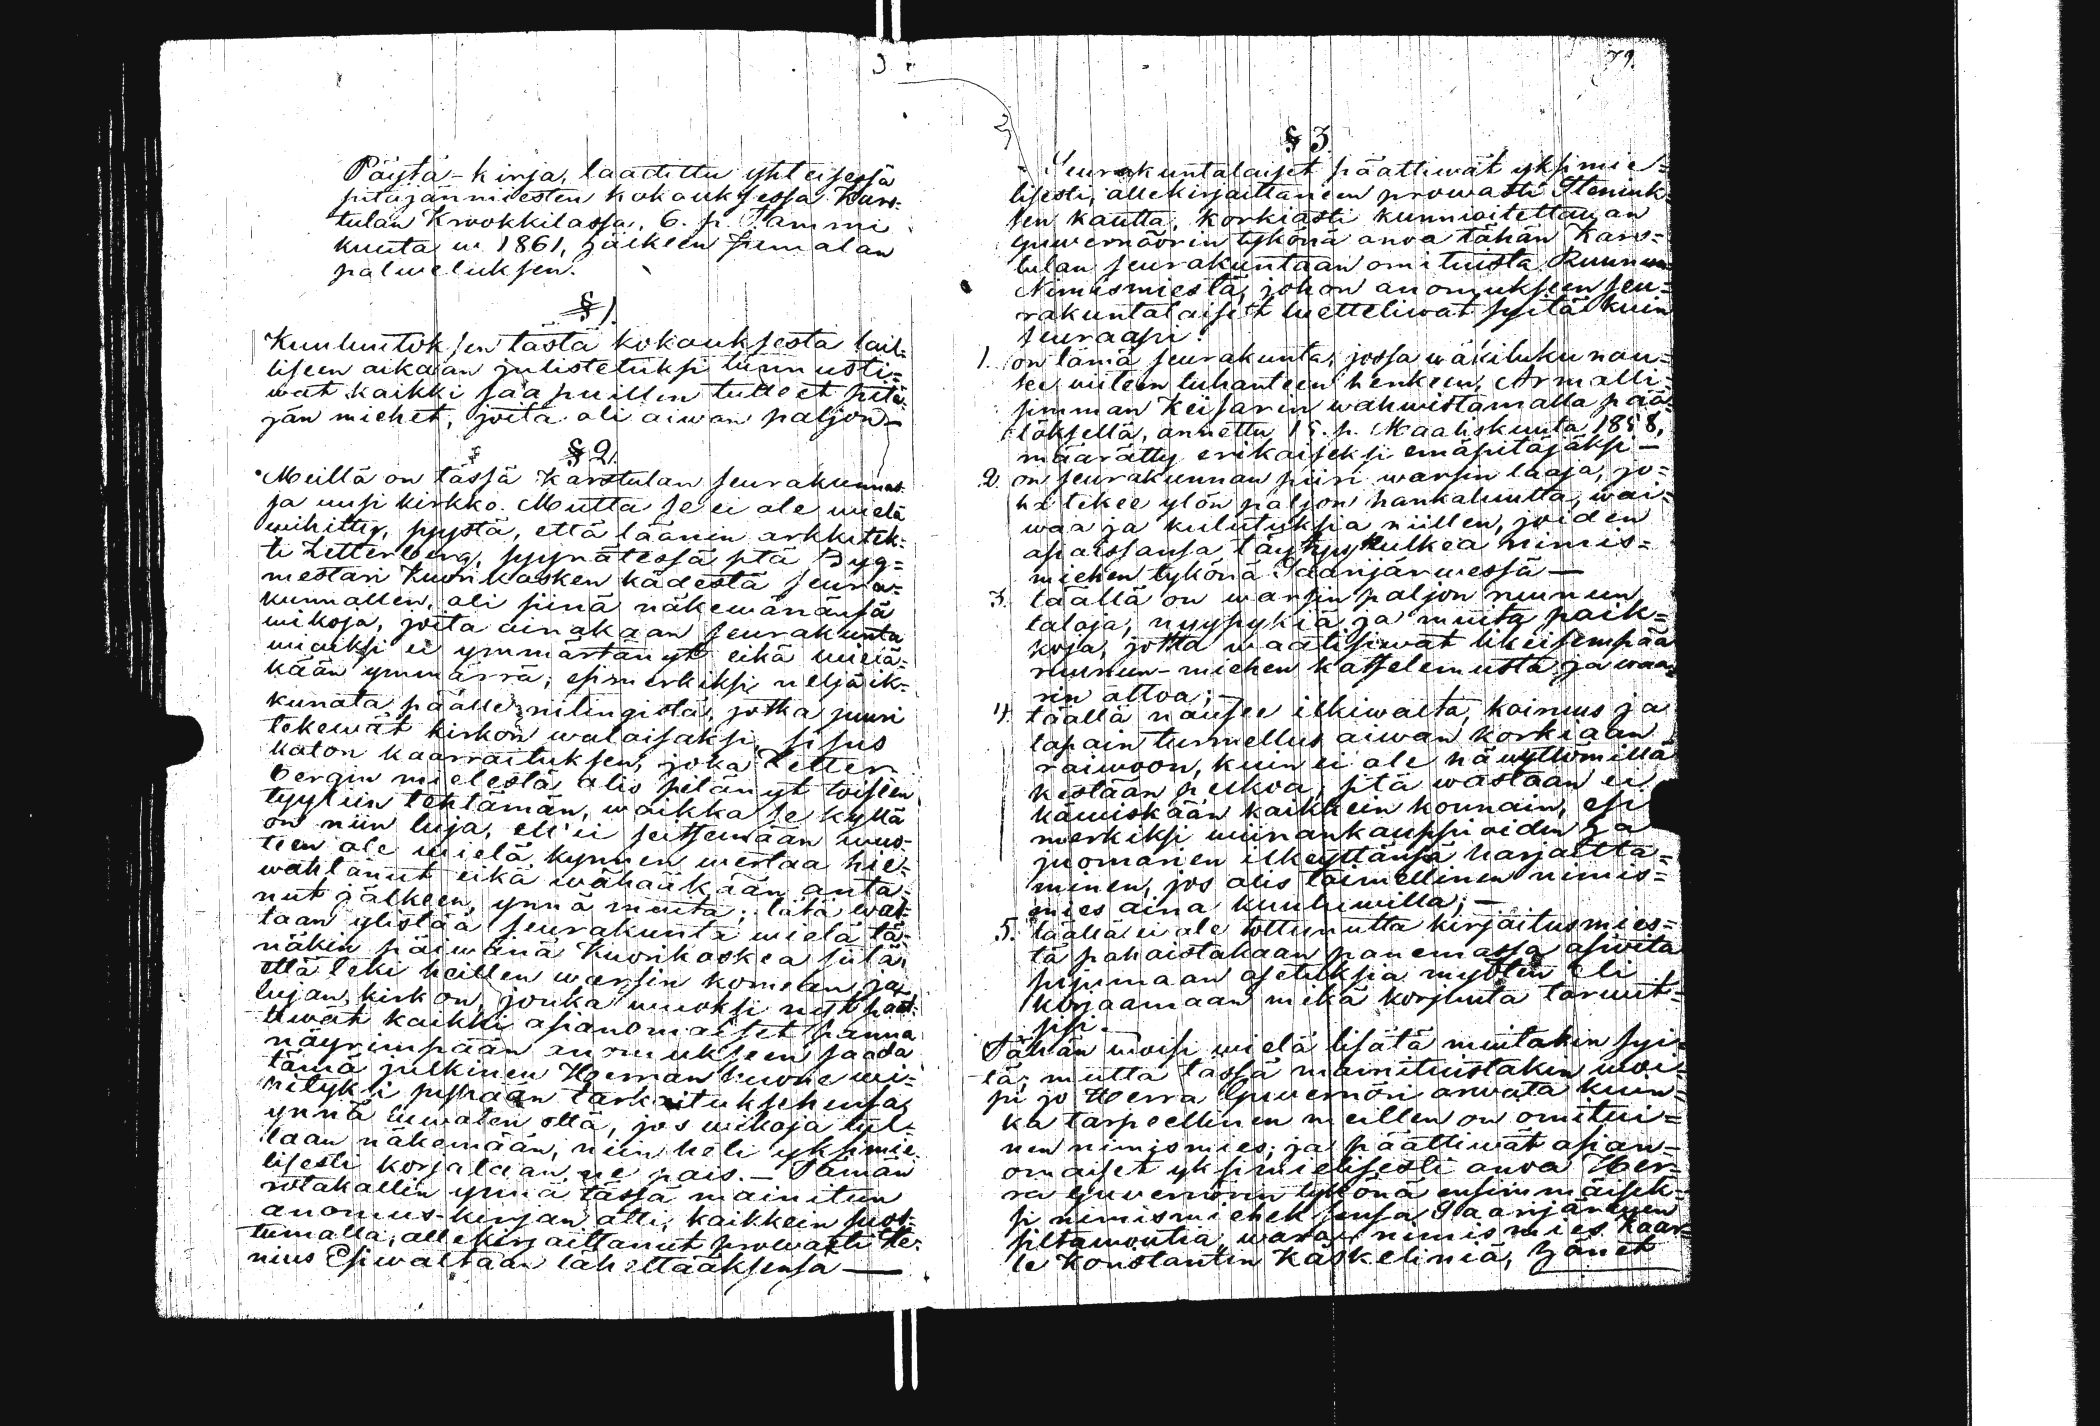 79.
Päytä-kirja, laadittu yhteisessä
pitäjänmiesten kokouksessa Kars-
tulan Krookkilassa, 6. p. Tammi
kuuta w. 1861, jälkeen Jumalan
palweluksen.
§ 1.
Kuulutuksen tästä kokouksesta lail-
liseen aikaan julistetuksi tunnusti-
wat kaikki saapuillen tulleet pitä-
jän miehet, joita oli aiwan paljon —
§ 2.
Meillä on tässä Karstulan seurakunnas-
sa uusi kirkko. Mutta se ei ole wielä
wihitty, syystä, että läänin arkkitek-
ti Zetterberg, syynätessä sitä Byg-
mestari Kuorikosken kädestä seura-
kunnallen, oli siinä näkewänänsä
wikoja, joita ainakaan seurakunta
wioiksi ei ymmärtänyt eikä wielä-
kään ymmärrä; esimerkiksi neljäik-
kunata päälle nilingistä, jotka juuri
tekewät kirkon walaisaksi, sisus
katon kaarraituksen, joka Zetter
bergin mielestä olis pitänyt toiseen
tyyliin tehtämän, waikka se kyllä
on niin luja, ett'ei seitsemään wuo-
teen ole wielä kymmen wertaa hie-
wahtanut eikä wähääkään anta-
nut jälkeen, ynnä muuta; tätä was-
taan ylistää seurakunta wielä tä-
näkin päiwänä Kuorikoskea siitä,
että teki heillen warsin komean ja
lujan kirkon, jonka wuoksi nyt päät-
tiwät kaikki asianomaiset panna
näyrimpään anomukseen saada
tämä julkinen Herran huone wi-
hityksi pyhään tarkoitukseensa,
ynnä luwaten että, jos wikoja tul-
laan näkemään, niin heti yksimie-
lisesti korjataan ne pois. — Tämän
rotakallin ynnä tässä mainitun
anomus-kirjan otti, kaikkein suos-
tumalla, allekirjoittanut prowasti Ste-
nius Esiwaltaan lähettääksensä —
§ 3.
Seurakuntalaiset päättiwät yksimie-
lisesti, allekirjoittaneen prowasti Steniuk-
sen kautta, korkiasti kunnioitettawan
Guwernöörin tykönä anoa tähän Kars-
tulan seurakuntaan omituista Ruunun
Nimismiestä, johon anomukseen seu-
rakuntalaiset luetteliwat syitä kuin
seuraapi:
1. on tämä seurakunta, jossa wäkiluku nou-
see wiiteen tuhanteen henkeen, Armolli-
simman Keisarin wahwistamalla pää-
töksellä, annettu 15. p. Maaliskuuta 1858,
määrätty erikaiseksi emäpitäjäksi —
2. on seurakunnan piiri warsin laaja, jo-
ka tekee ylön paljon hankaluutta, wai-
waa ja kulutuksia niillen, joiden
asioissansa täytyy kulkea nimis-
miehen tykönä Saarijärwessä —
3. täällä on warsin paljon ruunun
taloja, nyypykiä ja muita paik-
koja, jotka waatisiwat likeisempää
ruunun-miehen katselemusta ja waa-
rin ottoa; —
4. täällä nousee ilkiwalta, koiruus ja
tapain turmellus aiwan korkiaan
raiwoon, kuin ei ole näwyttömillä
ketään pelkoa, sitä wastaan ei
kämiskään kaikkein kounain, esi
merkiksi wiinankauppioiden ja
juomarien ilkeyttänsä harjoitta-
minen, jos olis toimellinen nimis-
mies aina kuuluwilla; —
5. täällä ei ole tottunutta kirjoitusmies-
tä pahaistakaan panemassa asioita
pysymaan asetuksia myöten eli
korjaamaan mikä korjuuta tarwit-
sisi. —
Tähän woisi wielä lisätä muitakin syi-
tä; mutta tässä mainituistakin woi-
pi jo Herra Guwernöri arwata kuin-
ka tarpeellinen meillen on omitui-
nen nimismies; ja päättiwät asian-
omaiset yksimielisesti anoa Her-
ra Guwernörin tykönä ensimmäisek-
si nimismieheksensä Saarijärwen
siltawoutia, wara nimismies Kaar-
le Konstantin Kaskelinia, Jänet